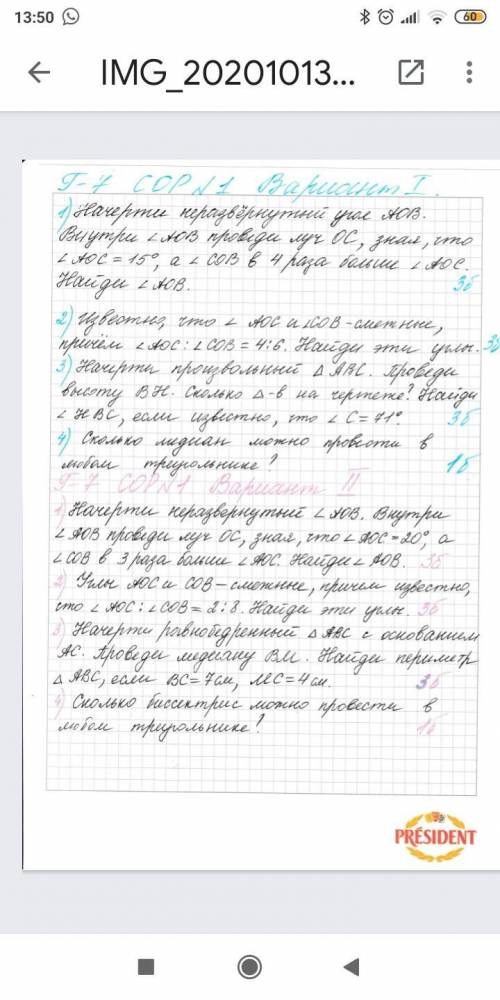 13:50
60
IMG_20201013...
Г-7 СОР №1 Вариант I.
1) Начерти неразвёрнутый угол АОВ.
Внутри ∠АОВ проведи луч ОС, зная, что
∠АОС = 15°, а ∠СОВ в 4 раза больше ∠АОС.
Найди ∠АОВ. 3б
2) Известно, что ∠ АОС и ∠СОВ - смежные,
причём ∠АОС : ∠СОВ = 4:6. Найди эти углы. 3б
3) Начерти произвольный △ АВС. Проведи
высоту ВН. Сколько △-в на чертеже? Найди
∠ НВС, если известно, что ∠ С = 71° 3б
4) Сколько медиан можно провести в
любом треугольнике? 1б
Г-7 СОР №1 Вариант II
1) Начерти неразвернутый ∠ АОВ. Внутри
∠АОВ проведи луч ОС, зная, что ∠АОС = 20°, а
∠СОВ в 3 раза больше ∠АОС. Найди ∠ АОВ. 3б
2) Углы АОС и СОВ - смежные, причем известно,
что ∠ АОС : ∠СОВ = 2:8. Найди эти углы. 3б
3) Начерти равнобедренный △ АВС с основанием
АС. Проведи медиану ВМ. Найди периметр
△ АВС, если ВС = 7см, МС = 4 см. 3б
4) Сколько биссектрис можно провести в
любом треугольнике? 1б
PRÉSIDENT